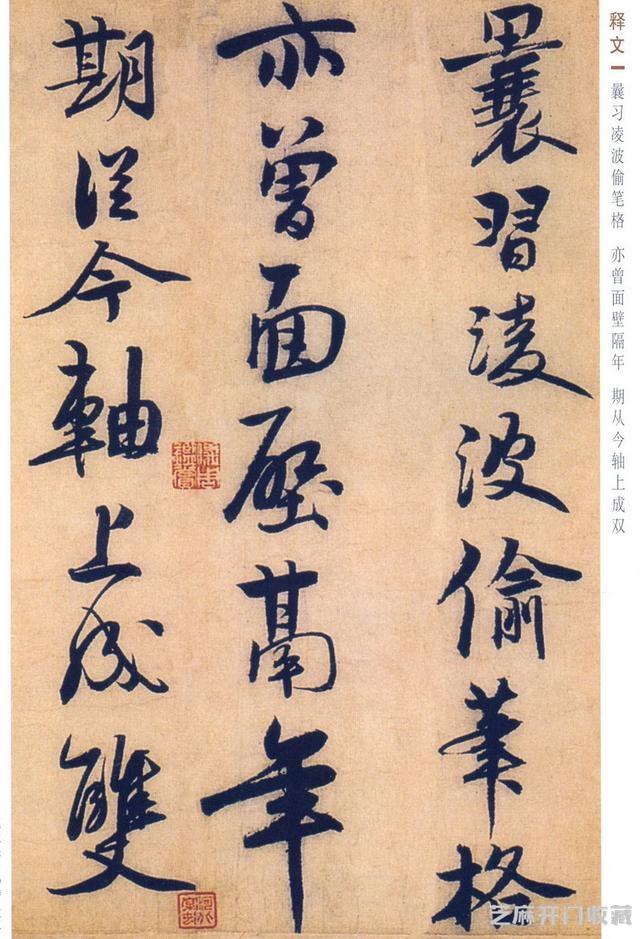 曩習淩波偷筆格
亦曾面壁鬲年
期從今軸上成雙
释文 曩习凌波偷笔格 亦曾面壁隔年 期从今轴上成双
芝麻开门收藏